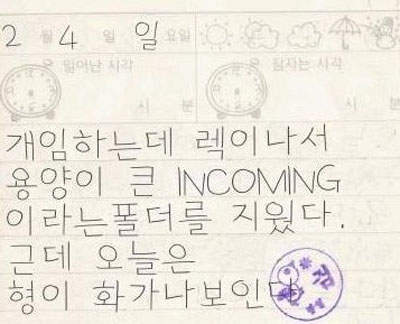 2월 4일 일요일
일어난 시각 잠자는 시각
시 분 시 분
개임하는데 렉이나서
용양이 큰 INCOMING
이라는폴더를 지웠다.
근데 오늘은
형이 화가나보인다